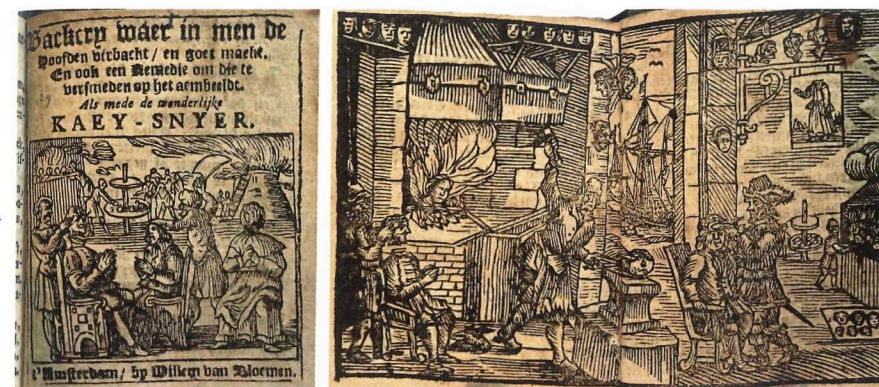 Backery waer in men de
Hoofden verbackt / en goet maekt.
En ook een Remedie om die te
versmeden op het aembeeldt.
Als mede de wonderlijke
KAEY-SNYER.
t'Amsterdam / by Willem van Bloemen.